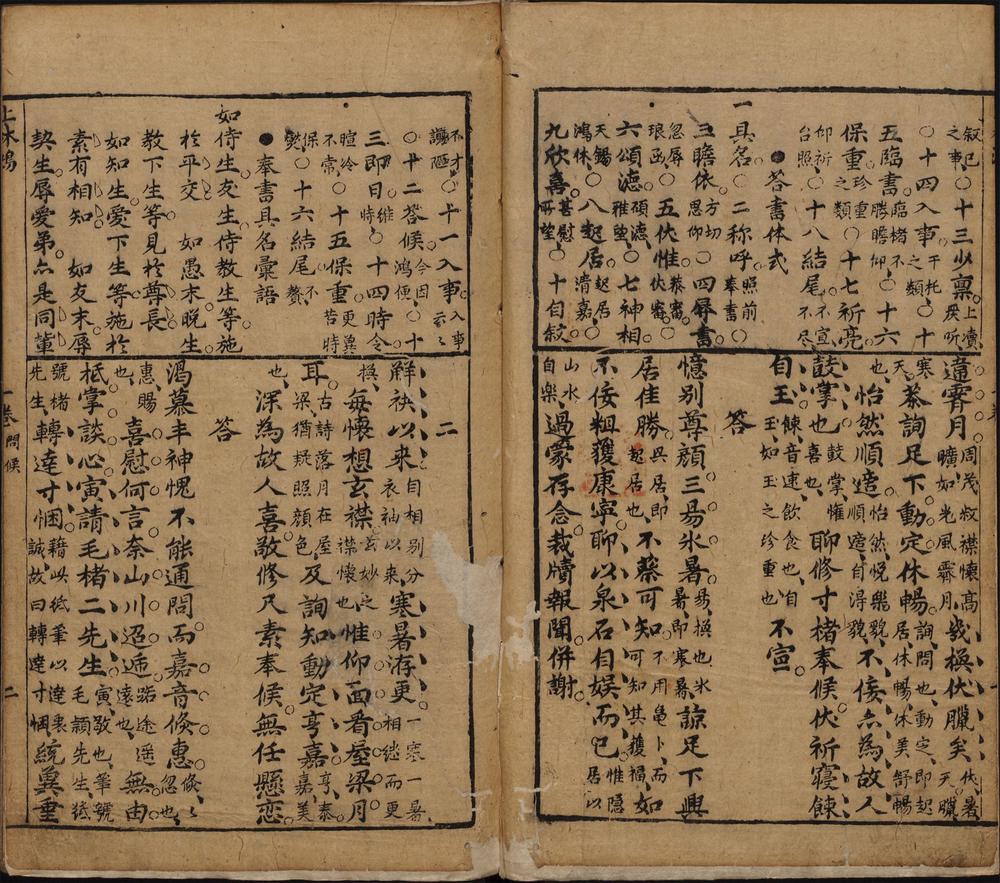 叙已之事○十三少稟上瀆戾听
○十四入事干托之類○十
五臨書臨楮不勝瞻仰○十六
保重珍重之類○十七祈亮
仰祈台照○十八結尾不宣不尽
●答書体式
一具名○二称呼照前奉書○
三瞻依方切思仰○四辱書
忽辱琅函○五伏惟恭審伏審○
六頌德碩德雅望○七神相
天錫鴻休○八起居起居清嘉○
九欣喜甚慰所望○十自敘
違霽月周茂叔襟懷高曠如光風霽月幾換伏臘矣伏暑天臘
寒天茶詢足下動定休暢詢問也動定即起居休暢休美舒暢
也怡然順適怡然悅樂貌順適自得貌不佞亦為故人
鼓掌也鼓掌懽喜也聊修寸楮奉候伏祈寢餗
自玉餗音速飲食也自玉如玉之珍重也不宣
答
憶别尊顔三昜氷暑昜換也氷暑即寒暑諒足下興
居佳勝興居即起居也不蔡可知不用龜卜而可知其獲福如
不佞粗獲康寧聊以泉石自娯而已惟隱居以
山水自樂過蒙存念裁牘報聞併謝
不才譾陋○十一入事入事云云
○十二答候今因鴻便○十
三即日維時○十四時令
暄冷不常○十五保重更冀
保爕○十六結尾不贅苦時
●奉書具名彙語
如侍生友生侍教生等施
於平交 如愚末晚生
教下生等見於尊長
如知生愛下生等施於
素有相知 如友末辱
契生辱愛弟亦是同輩
二
觧袂以来自相别分衣袖以来寒暑洊更一寒一暑相継而更
換每懷想玄襟玄妙之襟懷也惟仰面看屋梁月
耳古詩落月在屋梁猶疑照顔色及詢知動定亨嘉亨泰嘉美
也深為故人喜敬修尺素奉候無任懸恋
答
渴慕丰神愧不能通問而嘉音倐惠倐忽也
惠賜也喜慰何言奈山川迢遞迢遞路途遥遠也無由
柢掌談心寅請毛楮二先生寅敬也筆號毛頴先生紙
號楮先生轉達寸悃籍以紙筆以達衷誠故曰轉達寸悃統冀垂
一卷 問候 二